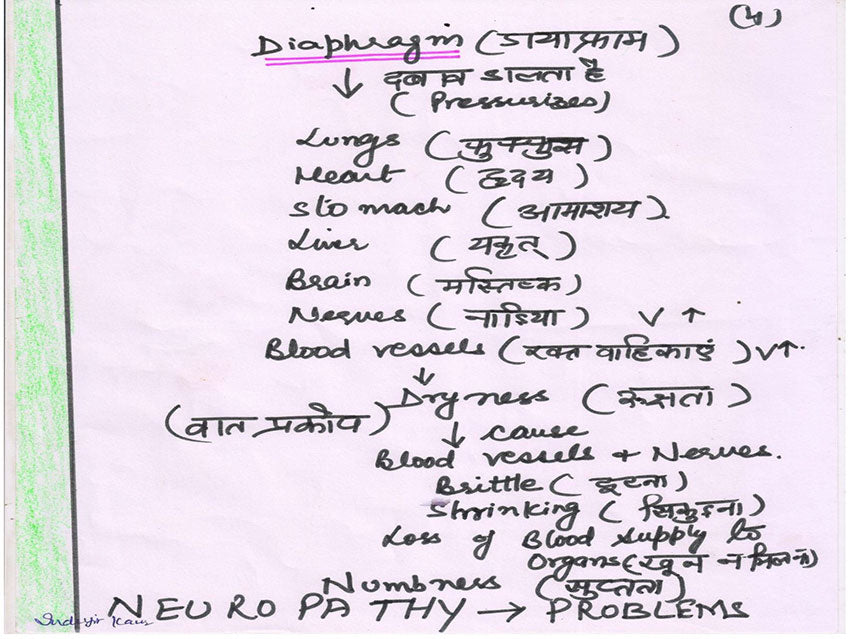 (५)
Diaphragm (डायाफ्राम)
↓ दबाव डालता है
(Pressurizes)
Lungs (फुफ्फुस)
Heart (हृदय)
Stomach (आमाशय).
Liver (यकृत्)
Brain (मस्तिष्क)
Nerves (नाडिया) V ↑
Blood vessels (रक्त वाहिकाएं) V↑.
↓
Dryness (रूक्षता)
(वात प्रकोप)
↓ cause
Blood vessels + Nerves.
Brittle (टूटना)
Shrinking (सिकुड़ना)
Loss of Blood supply to
Organs (खून न मिलना)
Numbness (सुप्तता)
NEUROPATHY → PROBLEMS
Kaur